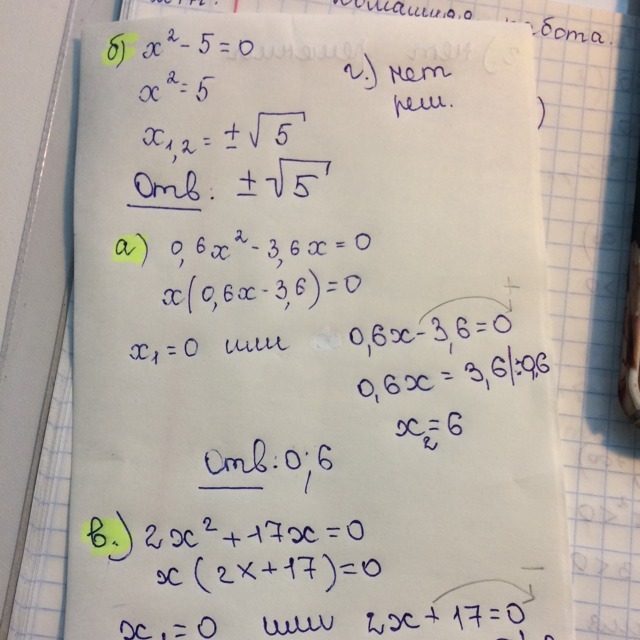 бота.
б) x² - 5 = 0
г.) нет
реш.
x² = 5
x₁,₂ = ± √5
Отв: ± √5
а) 0,6x² - 3,6x = 0
x(0,6x - 3,6) = 0
+
x₁ = 0 или 0,6x - 3,6 = 0
0,6x = 3,6 |:0,6
x₂ = 6
Отв: 0; 6
в.) 2x² + 17x = 0
x(2x + 17) = 0
-
x₁ = 0 или 2x + 17 = 0